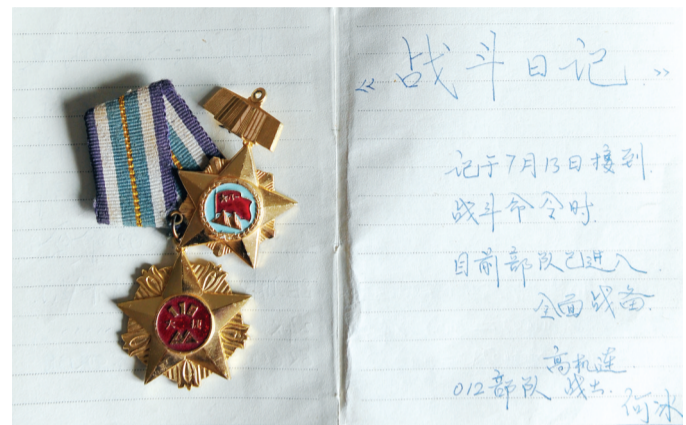 《战斗日记》
记于7月13日接到
战斗命令时.
目前部队已进入
全面战备.
高机连
012部队 战士.
何冰